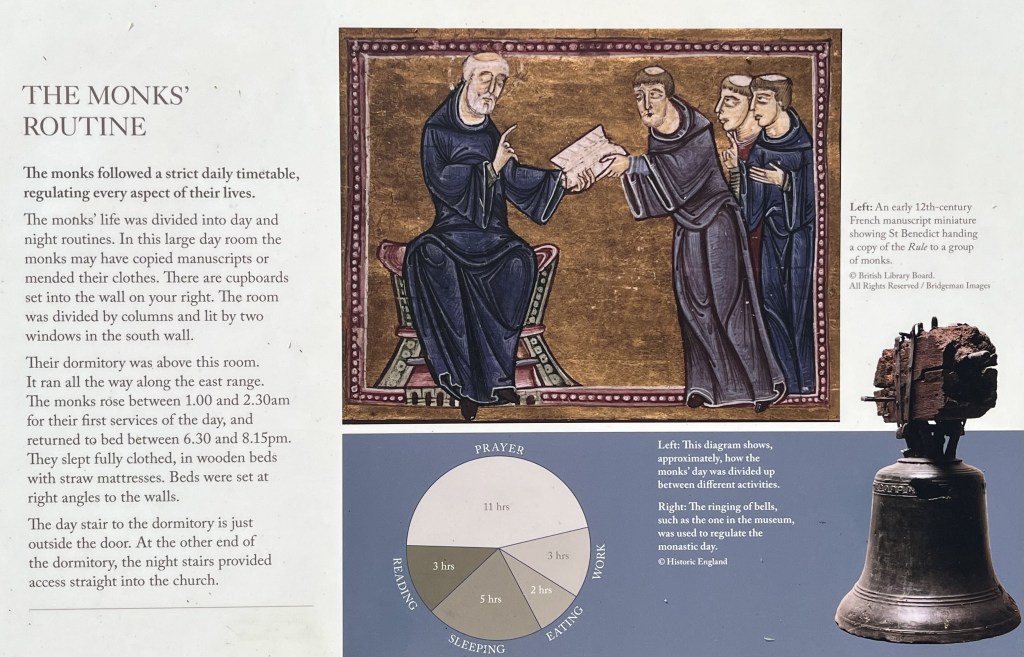 THE MONKS'
ROUTINE
The monks followed a strict daily timetable,
regulating every aspect of their lives.
The monks' life was divided into day and
night routines. In this large day room the
monks may have copied manuscripts or
mended their clothes. There are cupboards
set into the wall on your right. The room
was divided by columns and lit by two
windows in the south wall.
Their dormitory was above this room.
It ran all the way along the east range.
The monks rose between 1.00 and 2.30am
for their first services of the day, and
returned to bed between 6.30 and 8.15pm.
They slept fully clothed, in wooden beds
with straw mattresses. Beds were set at
right angles to the walls.
The day stair to the dormitory is just
outside the door. At the other end of
the dormitory, the night stairs provided
access straight into the church.
Left: An early 12th-century
French manuscript miniature
showing St Benedict handing
a copy of the Rule to a group
of monks.
© British Library Board.
All Rights Reserved / Bridgeman Images
PRAYER
11 hrs
WORK
3 hrs
EATING
2 hrs
SLEEPING
5 hrs
READING
3 hrs
Left: This diagram shows,
approximately, how the
monks' day was divided up
between different activities.
Right: The ringing of bells,
such as the one in the museum,
was used to regulate the
monastic day.
© Historic England